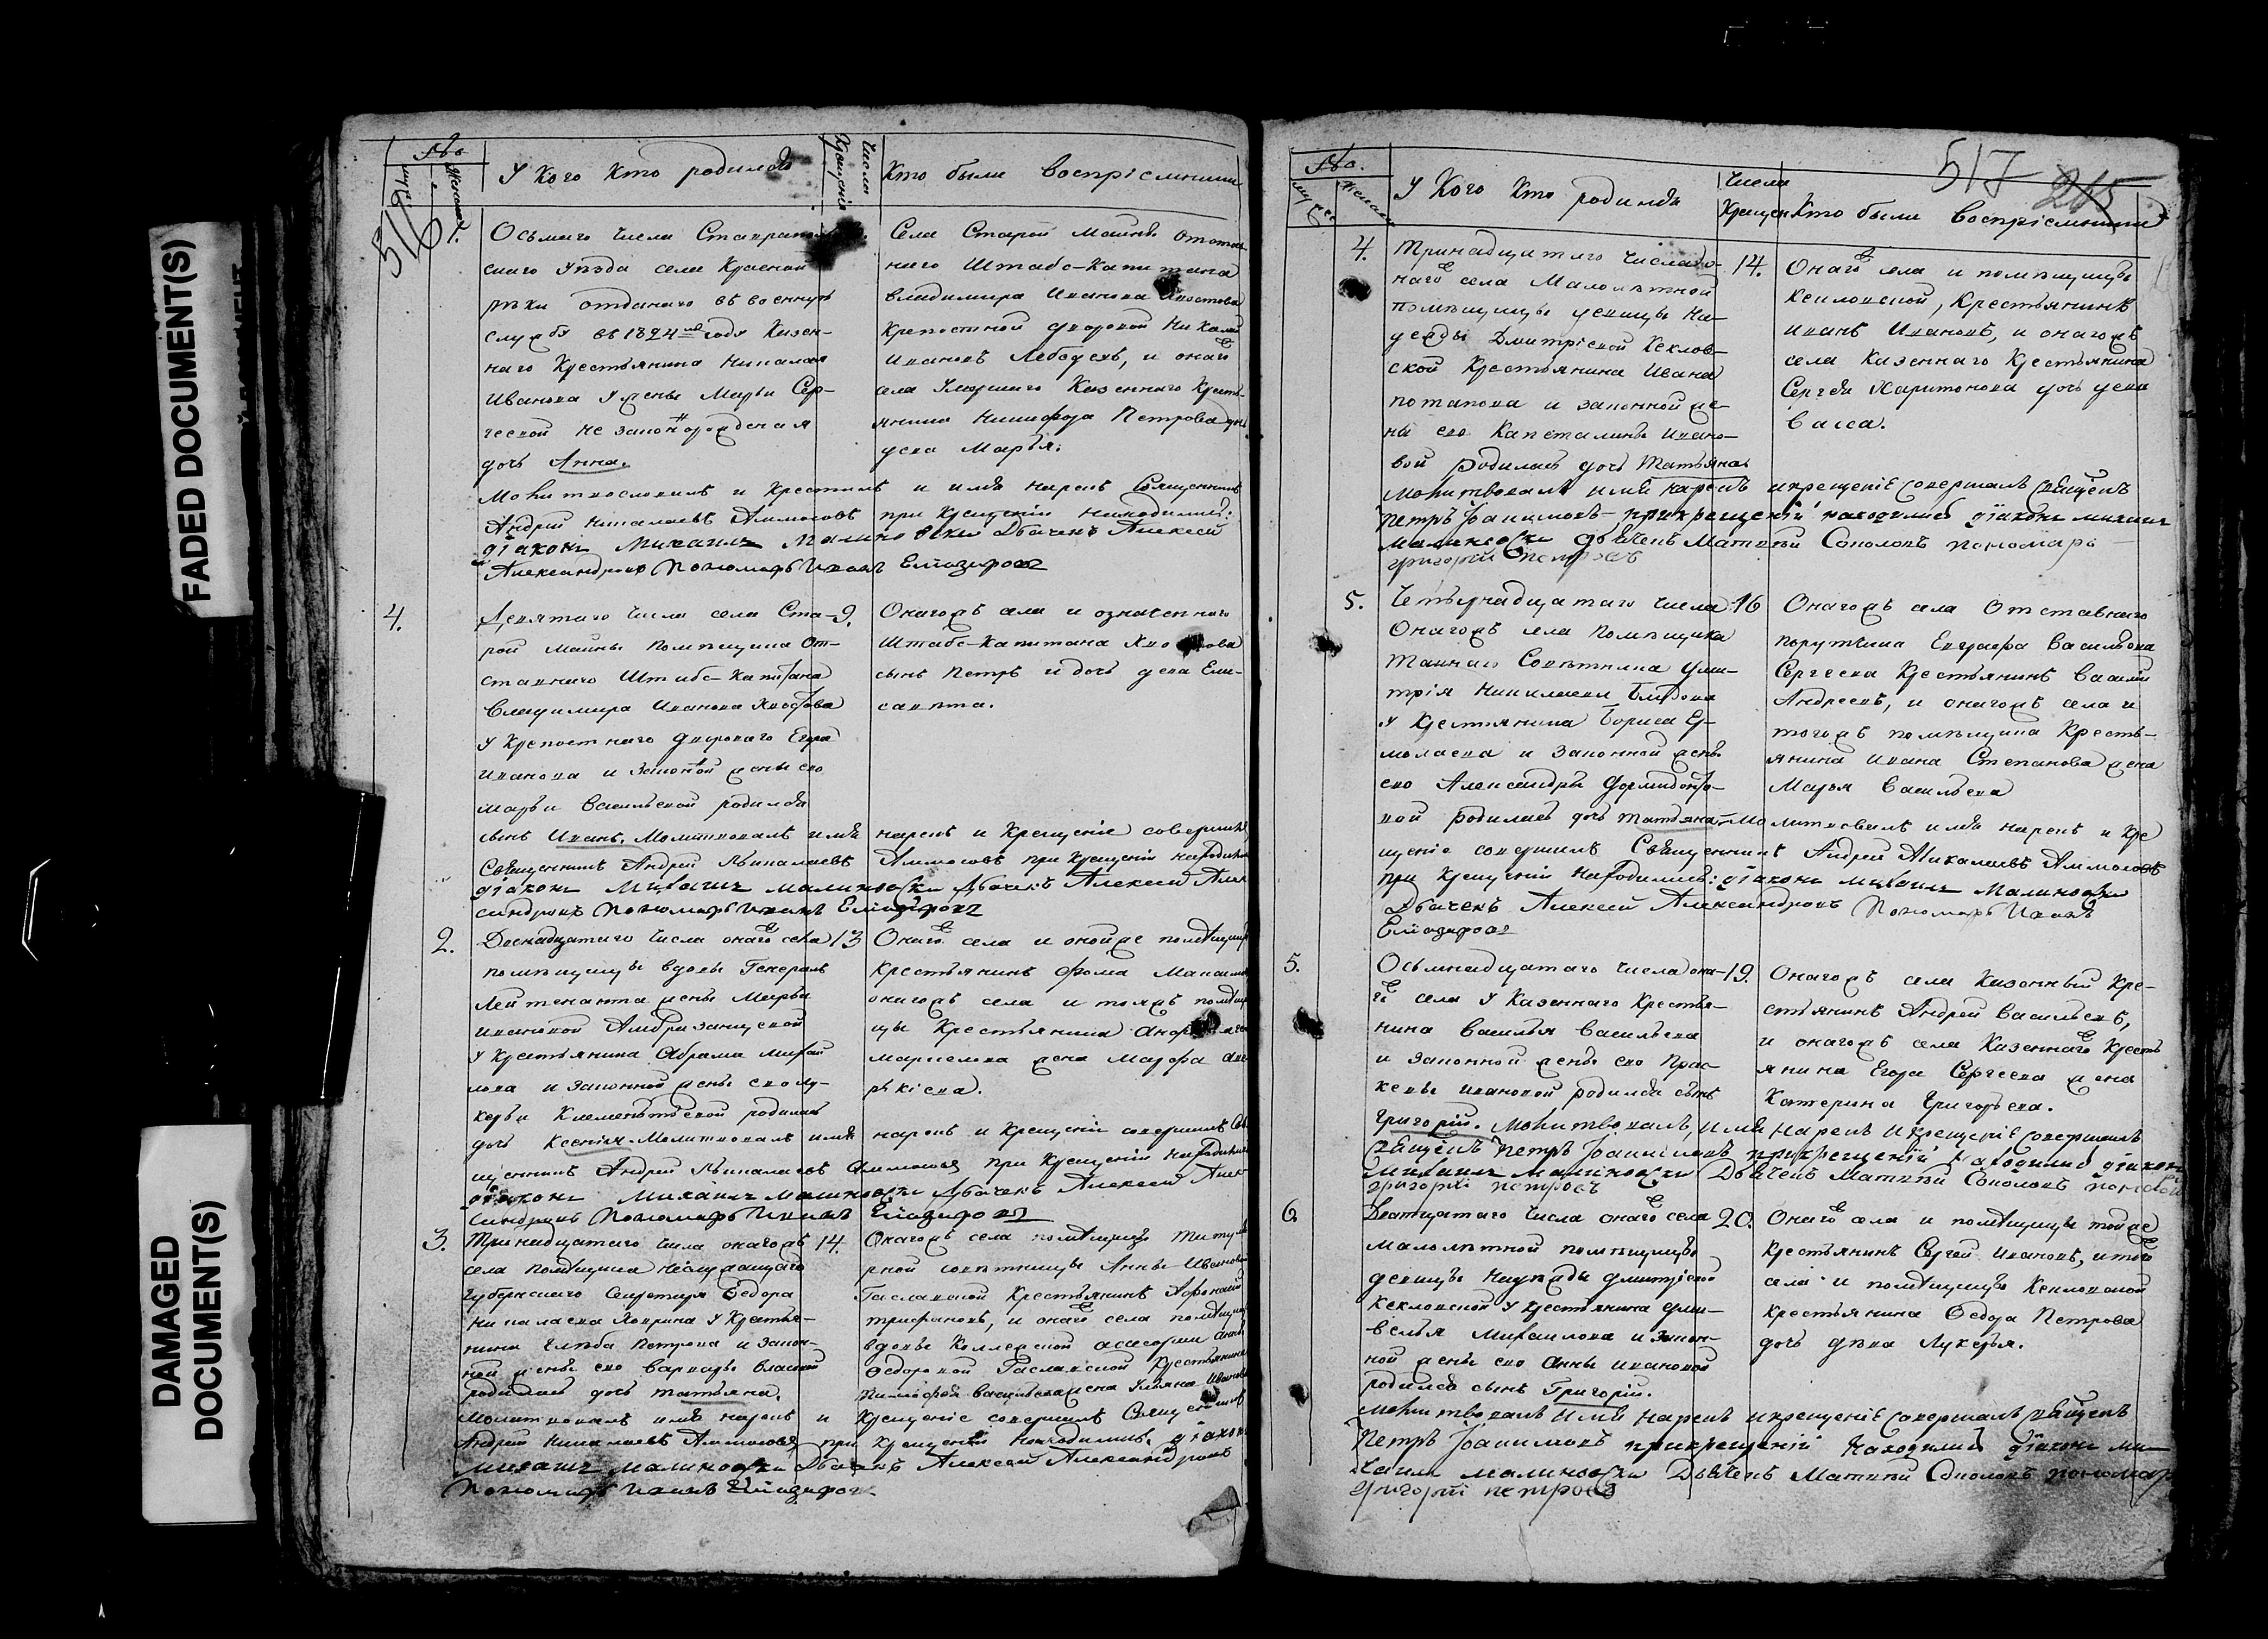 FADED DOCUMENT(S)
DAMAGED
DOCUMENT(S)
516
№
У Кого Кто родился
Числа Крещенія
Кто были воспріемники
1.
Осьмаго числа Ставрополь-
скаго уѣзда села Красной
рѣки отданаго въ военную
службу въ 1824мъ годѣ Казен-
наго Крестьянина Николая
Иванова у жены Марьи Сер-
геевой не законорожденая
дочь Анна.
Села Старой Майны отстав-
наго Штабс-Капитана
Владимира Иванова Хвостова
Крепостной дворовой Николай
Ивановъ Лебедевъ, и онаго
села умершаго Казеннаго Кресть-
янина Никифора Петрова дочь
дева Марья.
Молитвословилъ и Крестилъ и имя нарекъ Священникъ
Андрей Николаевъ Аммосовъ при Крещеніи находились:
діаконъ Михаилъ Малиновски Дьячекъ Алексей
Александровъ Пономарь Иванъ Елпидифоровъ
4.
Девятаго числа села Ста-
рой Майны помѣщика От-
ставнаго Штабс-Капитана
Владимира Иванова Хвостова
у Крепостнаго дворового Егора
Иванова и законной жены его
Марьи Васильевой родился
9.
Онагожъ села и означеннаго
Штабс-Капитана Хвостова
сынъ Петръ и дочь дева Ели-
савѣта.
сынъ Иванъ. Молитвовалъ имя нарекъ и Крещеніе совершилъ
Священникъ Андрей Николаевъ Аммосовъ при Крещеніи находились
діаконъ Михаилъ Малиновски Дьячекъ Алексей Алек
сандровъ Пономарь Иванъ Елпидифоровъ
2.
Двенадцатаго числа онаго села
помѣщицы вдовы Генералъ
Лейтенанта жены Марьи
Ивановой
у Крестьянина Абрама Михай
лова и законной жены его Лу-
керьи Клементьевой родилась
13
Онаго села и онойже помѣщицы
Крестьянинъ Фома
онагожъ села и тояжъ помѣщи
цы Крестьянина
жена Марфа
дочь Ксенія. Молитвовалъ имя нарекъ и Крещеніе совершилъ Свя
щенникъ Андрей Николаевъ Аммосовъ при Крещеніи находились
діаконъ Михаилъ Малиновски Дьячекъ Алексей Алек
сандровъ Пономарь Иванъ Елпидифоровъ
3.
Тринадцатаго числа онагожъ
села помѣщика неслужащаго
Губернскаго Секретаря Федора
Николаева у Крестья-
нина Глѣба Петрова и закон-
ной жены его Варвары Власовой
родилась дочь Татьяна.
14.
Онагожъ села помѣщицы Титуля
рной совѣтницы Анны Ивановой
Крестьянинъ Афонасій
Трифоновъ, и онаго села помѣщицы
вдовы Коллежской асесорши Анны
Федоровой Крестьянина
Васильева жена Ульяна Иванова
Молитвовалъ имя нарекъ и Крещеніе совершилъ Священникъ
Андрей Николаевъ Аммосовъ при Крещеніи находились. діаконъ
Михаилъ Малиновски Дьячекъ Алексей Александровъ
Пономарь Иванъ Елпидифоровъ
517 265
№.
У Кого Кто родился
Числа Крещен
Кто были воспріемники
4.
Тринадцатаго числа о-
наго села Малолѣтной
помѣщицы девицы На-
дежды Дмитріевой Кеклов-
ской Крестьянина Ивана
Потапова и законной же-
ны его Капеталины Ивано-
вой родилась дочь Татьяна
14.
Онаго села и помѣщицы
Кекловской, Крестьянинъ
Иванъ Ивановъ, и онагожъ
села Казеннаго Крестьянина
Сергея Харитонова дочь дева
Васса.
Молитвовалъ имя нарекъ и крещеніе совершалъ Священъ
Петръ Іоакимовъ, при крещеніи находились діаконъ Михаилъ
Малиновски дьячекъ Матвѣй Соколовъ пономарь
григорій Петровъ
5.
Четырнадцатаго числа
Онагожъ села помѣщика
Тайнаго Совѣтника Дми-
трія Николаева
у Крестьянина Бориса Ер-
молаева и законной жены
его Александры Формидонто-
вой родилась дочь Татьяна. Молитвовалъ имя нарекъ и Кре
16
Онагожъ села Отставнаго
порутчика Евграфа Васильева
Сергеева Крестьянинъ Василій
Андреевъ, и онагожъ села и
тогожъ помѣщика Кресть-
янина Ивана Степанова жена
Марья Васильева
щеніе совершилъ Священникъ Андрей Николаевъ Аммосовъ
при Крещеніи находились: діаконъ Михаилъ Малиновски
Дьячекъ Алексей Александровъ Пономарь Иванъ
Елпидифоровъ
5.
Осьмнадцатаго числа она-
го села у Казеннаго Крестья-
нина Василья Васильева
и законной жены его Прас-
ковьи Ивановой родился сынъ
19.
Онагожъ села Казенный Кре-
стьянинъ Андрей Васильевъ,
и онагожъ села Казеннаго Кресть
янина Егора Сергеева жена
Катерина Григорьева.
Григорій. Молитвовалъ, имя нарекъ и крещеніе совершалъ
Священъ Петръ Іоакимовъ при крещеніи находились діаконъ
Михаилъ Малиновски Дьячекъ Матвѣй Соколовъ пономарь
григорій петровъ
6
Дватцатаго числа онаго села
малолѣтной помѣщицы
девицы Надежды Дмитріевой
Кекловской у Крестьянина
Михаилова и закон-
ной жены его Анны Ивановой
родился сынъ Григорій.
20.
Онаго села и помѣщицы тойже
Крестьянинъ Сергей Ивановъ, и того
села и помѣщицы Кекловской
Крестьянина Ѳедора Петрова
дочь дѣва Лукерья.
Молитвовалъ имя нарекъ и крещеніе совершалъ Священъ
Петръ Іоакимовъ при крещеніи находились діаконъ Ми-
хаилъ Малиновски Дьячекъ Матвѣй Соколовъ пономарь
григорій петровъ